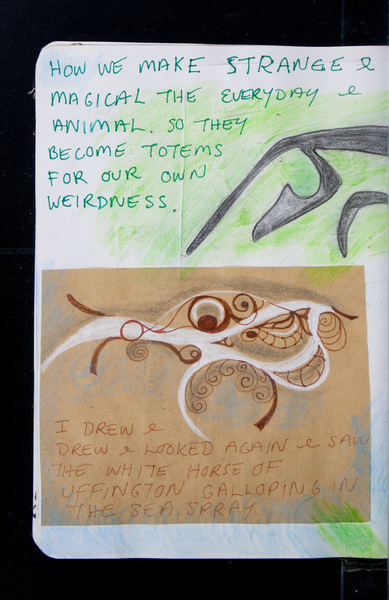 HOW WE MAKE STRANGE &
MAGICAL THE EVERYDAY &
ANIMAL. SO THEY
BECOME TOTEMS
FOR OUR OWN
WEIRDNESS.
I DREW &
DREW & LOOKED AGAIN & SAW
THE WHITE HORSE OF
UFFINGTON GALLOPING IN
THE SEA SPRAY.